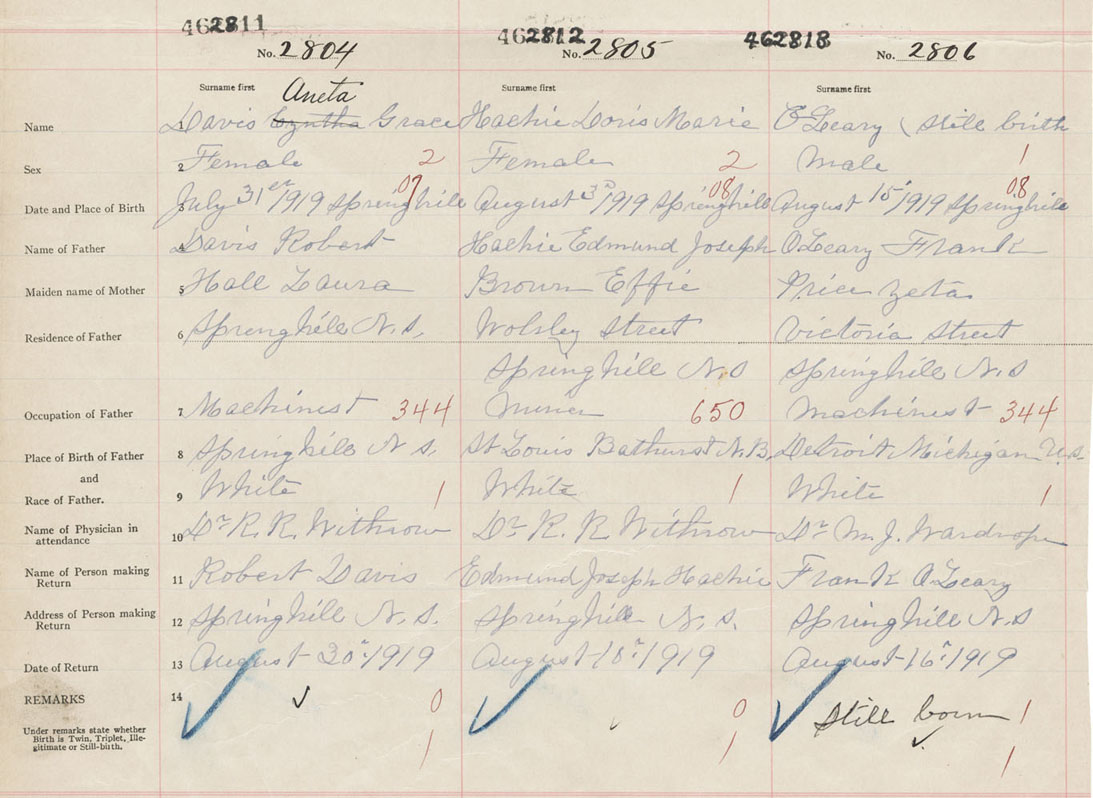 462811 462812 462818
No. 2804 No. 2805 No. 2806
Surname first Surname first Surname first
Aneta
Name 1 Davis Cyntha Grace Hachie Doris Marie O'Leary (still birth
Sex 2 Female 2 Female 2 Male 1
07 08 08
Date and Place of Birth 3 July 31st/1919 Springhill August 3rd/1919 Springhill August 15/1919 Springhill
Name of Father 4 Davis Robert Hachie Edmund Joseph O'Leary Frank
Maiden name of Mother 5 Hall Laura Brown Effie Price Zeta
Residence of Father 6 Springhill N.S. Wolsley Street Victoria Street
Springhill N.S Springhill N.S
Occupation of Father 7 Machinest 344 Miner 650 Machinest 344
Place of Birth of Father 8 Springhill N S. St Louis Bathurst N.B. Detroit Michigan U.S.
and
Race of Father. 9 White 1 White 1 White 1
Name of Physician in
attendance 10 Dr R. R. Withrow Dr R. R Withrow Dr M. J. Wardrope
Name of Person making
Return 11 Robert Davis Edmund Joseph Hachie Frank O.Leary
Address of Person making
Return 12 Springhill N. S. Springhill N. S. Springhill N.S
Date of Return 13 August 30 1919 August 18 1919 August 16 1919
REMARKS 14 0 0 still born 1
Under remarks state whether
Birth is Twin, Triplet, Ille-
gitimate or Still-birth. 1 1 1